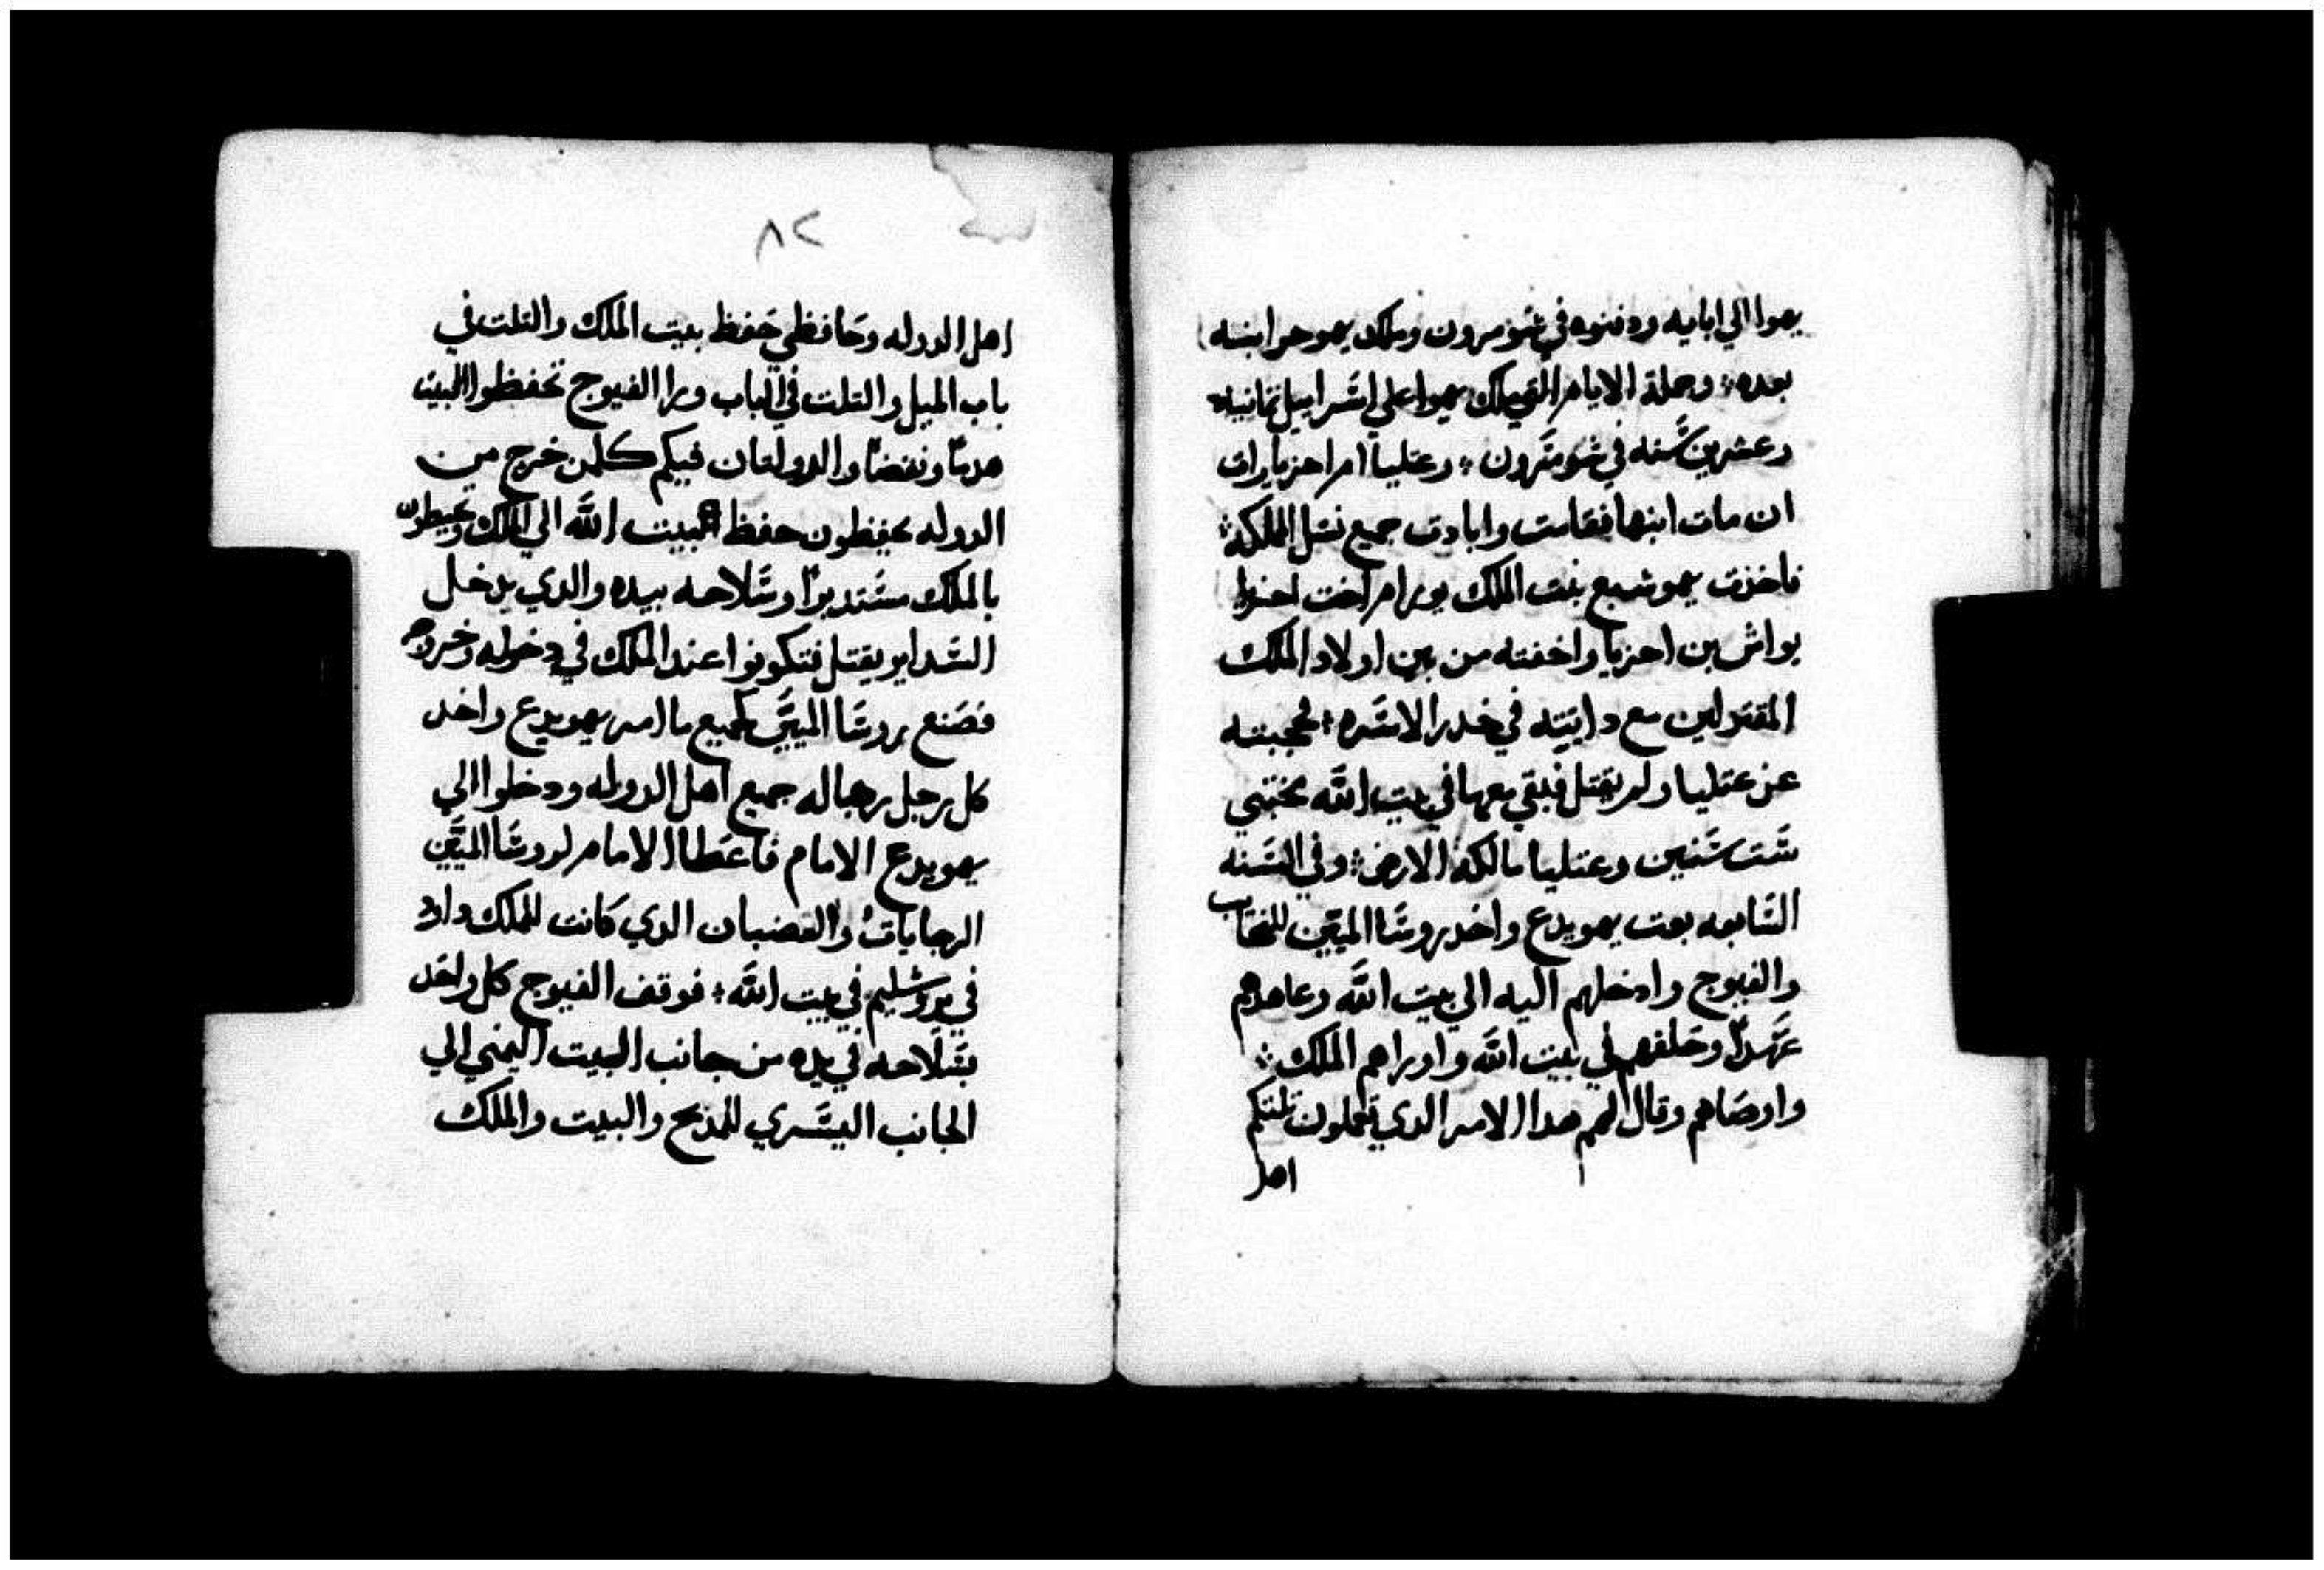 يهوا الي ابايه ودفنوه في شومرون وملك يهوحر ابنه
بعده وجملة الايام التي ملك يهوا علي اسراييل تمانيه
وعشرين سنه في شومرون وعتليا ام احزيا رات
ان مات ابنها فقامت وابادت جميع نسل المملكه
فاخذت يهوشبع بنت الملك يورام اخت احزيا
يواش بن احزيا واخفته من بين اولاد الملك
المقتولين مع دايته في خدر الاسره فحجبته
عن عتليا ولم يقتل فبقي معها في بيت الله مختبي
ست سنين وعتليا مالكة الارض وفي السنه
السابعه بعت يهويدع واخد روسا الميين للنقاب
والفيوج وادخلهم اليه الي بيت الله وعاهدهم
عهدًا وحلفهم في بيت الله واوراهم الملك
واوصاهم وقال لهم هدا الامر الدي تعملون تلتكم
اهل
٨٢
اهل الدوله وحافظي حفظ بيت الملك والتلت في
باب الميل والتلت في الباب ورا الفيوج تحفظوا البيت
هدمًا ونقضًا والدولتان فيكم كلمن خرج من
الدوله يحفظون حفظ بيت الله الي الملك وتحيطون
بالملك مستديرًا وسلاحه بيده والدي يدخل
السداير يقتل فتكونوا عند الملك في دخوله وخروجه
فصنع روسا الميين كجميع ما امر يهويدع واخد
كل رجل رجاله جميع اهل الدوله ودخلوا الي
يهويدع الامام فاعطا الامام لروسا الميين
الرجايات والقضبان الدي كانت للملك داود
في يروشليم في بيت الله فوقف الفيوج كل واحد
بسلاحه في يده من جانب البيت اليمني الي
الجانب اليسري للمدبح والبيت والملك